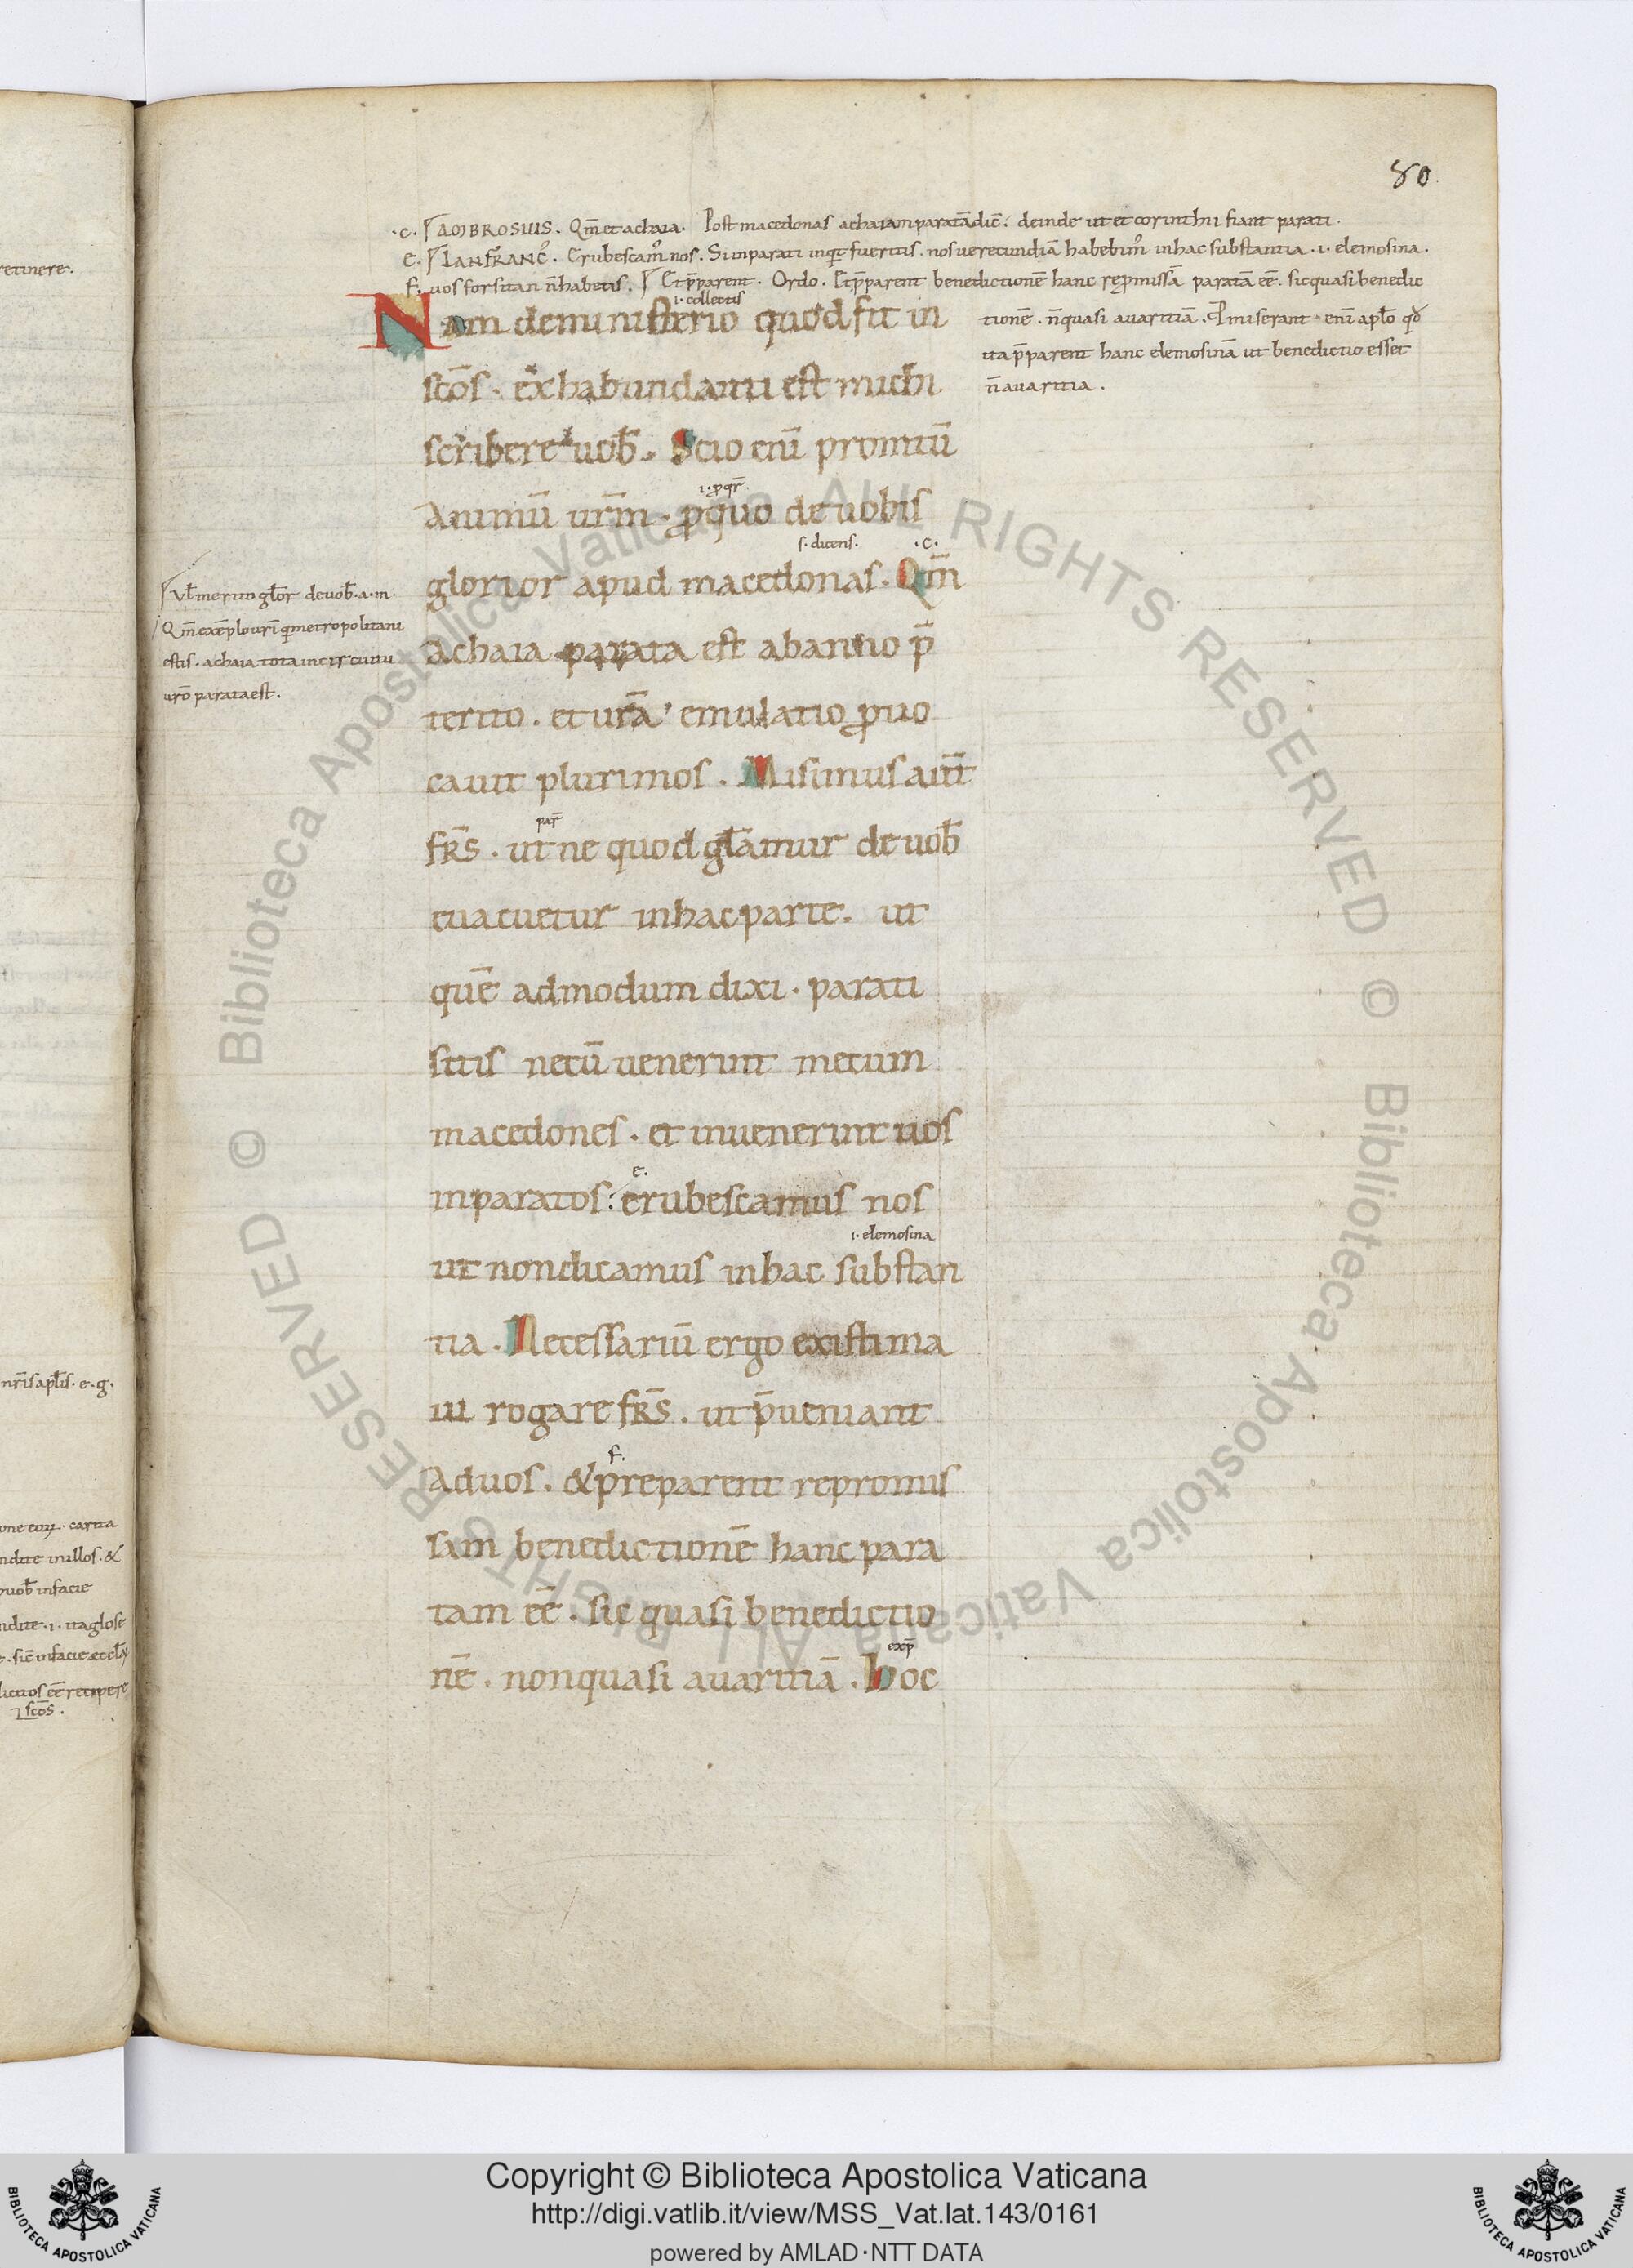 80
.c. AMBROSIUS. Qm̄ et achaia. Post macedonas achaiam paratā dic̄. deinde ut et corinthii fiant parati.
e. LANFRANC᷒. Erubescam᷒ nos. Si inparati inqt fueritis. nos uerecundiā habebim᷒ in hac substantia .i. elemosina.
f. uos forsitan n̄ habetis. Et p̄parent. Ordo. Et p̄parent benedictionē hanc repmissā paratā eē. sic quasi benedic
tionē. n̄ quasi auaritiā. Pmiserant enī aplo qđ
ita p̄parent hanc elemosinā ut benedictio esset
n̄ auaritia.
.i. collectis
Nam de ministerio quod fit in
sc̄os. ex habundanti est michi
scribere uob̄. Scio enī promtū
.i. ꝓ qr̄
Animū ur̄m. ꝓ quo de uobis
s. dicens. .c.
glorior apud macedonas. Qm̄
Achaia parata est ab anno p̄
terito. et ur̄a emulatio ꝓuo
cauit plurimos. Misimus aut̄
par̄
fr̄s. ut ne quod gl̄amur de uob̄
euacuetur in hac parte. ut
quē admodum dixi. parati
sitis ne cū uenerint mecum
macedones. et inuenerint uos
e.
inparatos: erubescamus nos
.i. elemosina
ut non dicamus in hac substan
tia. Necessariū ergo existima
ui rogare fr̄s. ut p̄ueniant
f.
Ad uos. & preparent repromis
sam benedictionē hanc para
tam eē. sic quasi benedictio
exp̄
nē. non quasi auaritiā. Hoc
Vl̄ merito glor̄ de uob̄. a. m.
Qm̄ exēplo urī q̄ metropolitani
estis. achaia tota in circuitu
uro parata est.
retinere.
nr̄is apl̄is. e. g.
in illos. &
uob̄ in facie
sc̄os.
© Biblioteca Apostolica Vaticana ALL RIGHTS RESERVED © Biblioteca Apostolica Vaticana ALL RIGHTS RESERVED
Copyright © Biblioteca Apostolica Vaticana
http://digi.vatlib.it/view/MSS_Vat.lat.143/0161
powered by AMLAD·NTT DATA
BIBLIOTECA APOSTOLICA VATICANA
BIBLIOTECA APOSTOLICA VATICANA